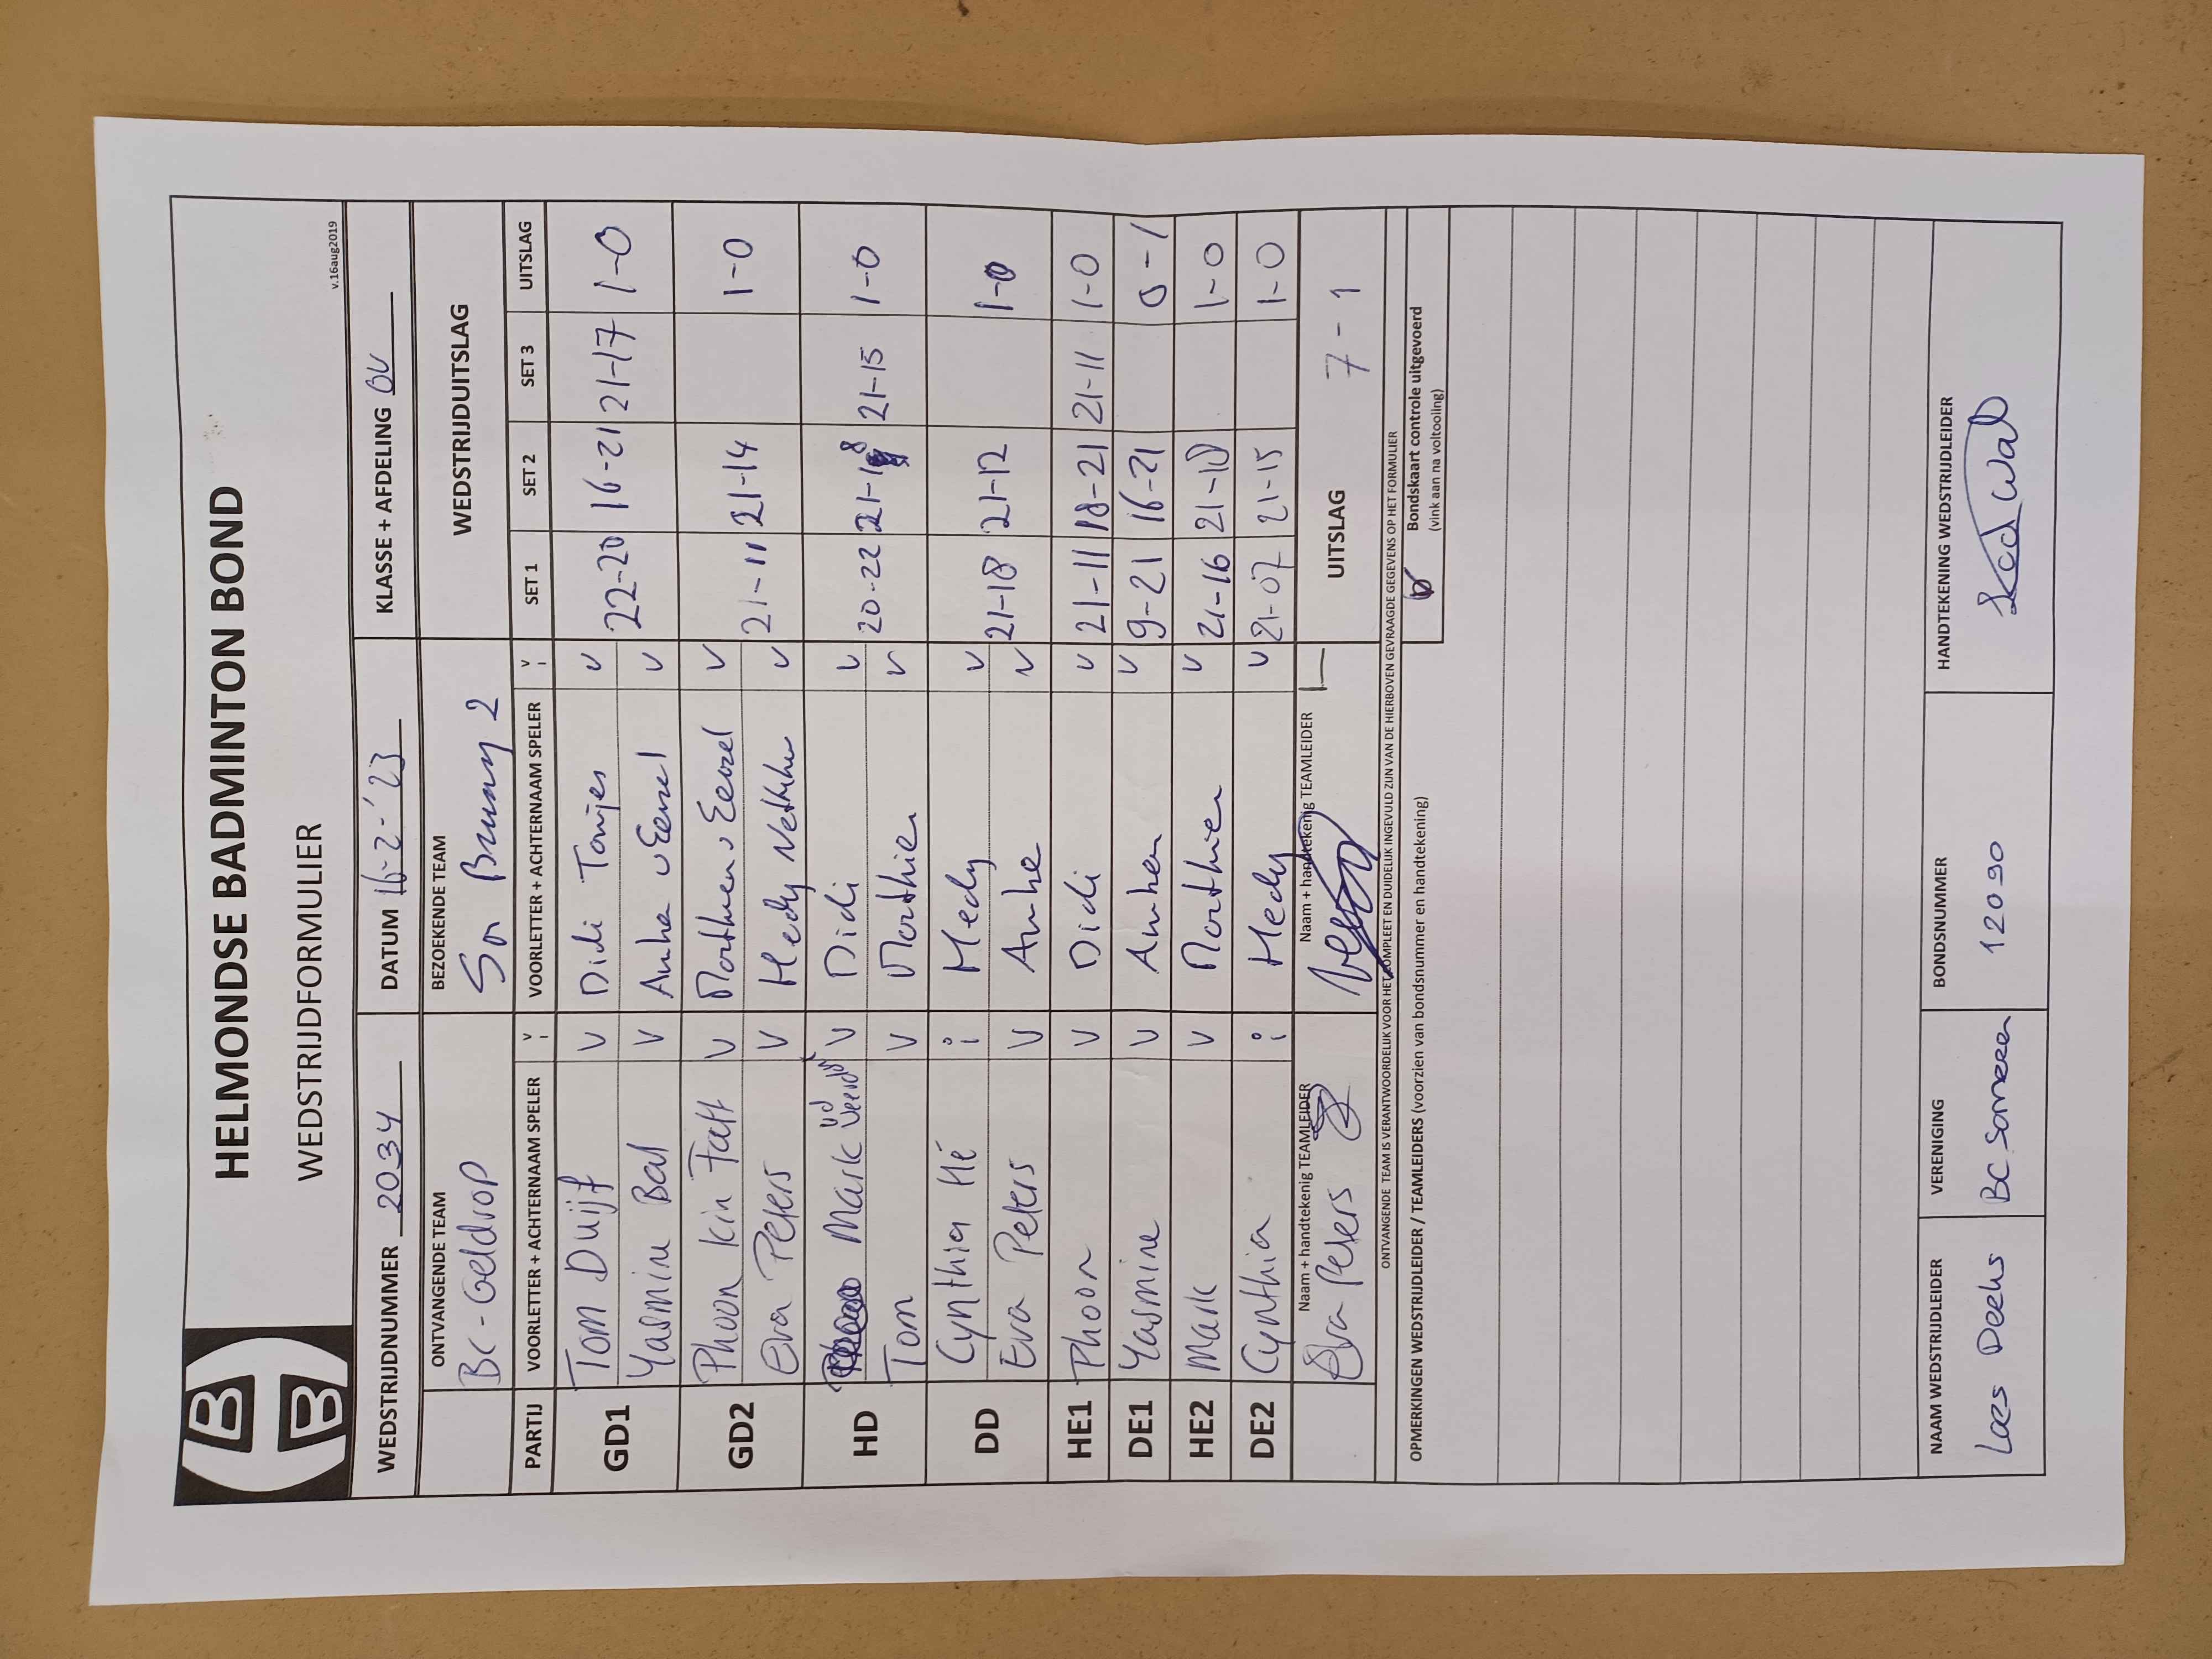 B
B
HELMONDSE BADMINTON BOND
WEDSTRIJDFORMULIER
v.16aug2019
WEDSTRIJDNUMMER 2034 DATUM 16-2-'23 KLASSE + AFDELING OV
ONTVANGENDE TEAM BEZOEKENDE TEAM WEDSTRIJDUITSLAG
BC-Geldrop 2
PARTIJ VOORLETTER + ACHTERNAAM SPELER V i VOORLETTER + ACHTERNAAM SPELER V i SET 1 SET 2 SET 3 UITSLAG
GD1 Tom Duijf V Didi V 22-20 16-21 21-17 1-0
Yasmine Bal V V
GD2 Phoon Kin Fatt V V 21-11 21-14 1-0
Eva Peters V Hedy V
HD Mark V Didi V 20-22 21-18 21-15 1-0
Tom V V
DD Cynthia Hé i Hedy V 21-18 21-12 1-0
Eva Peters V V
HE1 Phoon V Didi V 21-11 18-21 21-11 1-0
DE1 Yasmine V V 9-21 16-21 0-1
HE2 Mark V V 21-16 21-10 1-0
DE2 Cynthia i Hedy V 21-07 21-15 1-0
Naam + handtekenig TEAMLEIDER Naam + handtekenig TEAMLEIDER
Eva Peters UITSLAG 7-1
ONTVANGENDE TEAM IS VERANTWOORDELIJK VOOR HET COMPLEET EN DUIDELIJK INGEVULD ZIJN VAN DE HIERBOVEN GEVRAAGDE GEGEVENS OP HET FORMULIER
OPMERKINGEN WEDSTRIJDLEIDER / TEAMLEIDERS (voorzien van bondsnummer en handtekening)
Bondskaart controle uitgevoerd
(vink aan na voltooling)
NAAM WEDSTRIJDLEIDER VERENIGING BONDSNUMMER HANDTEKENING WEDSTRIJDLEIDER
Loes BC Someren 12090